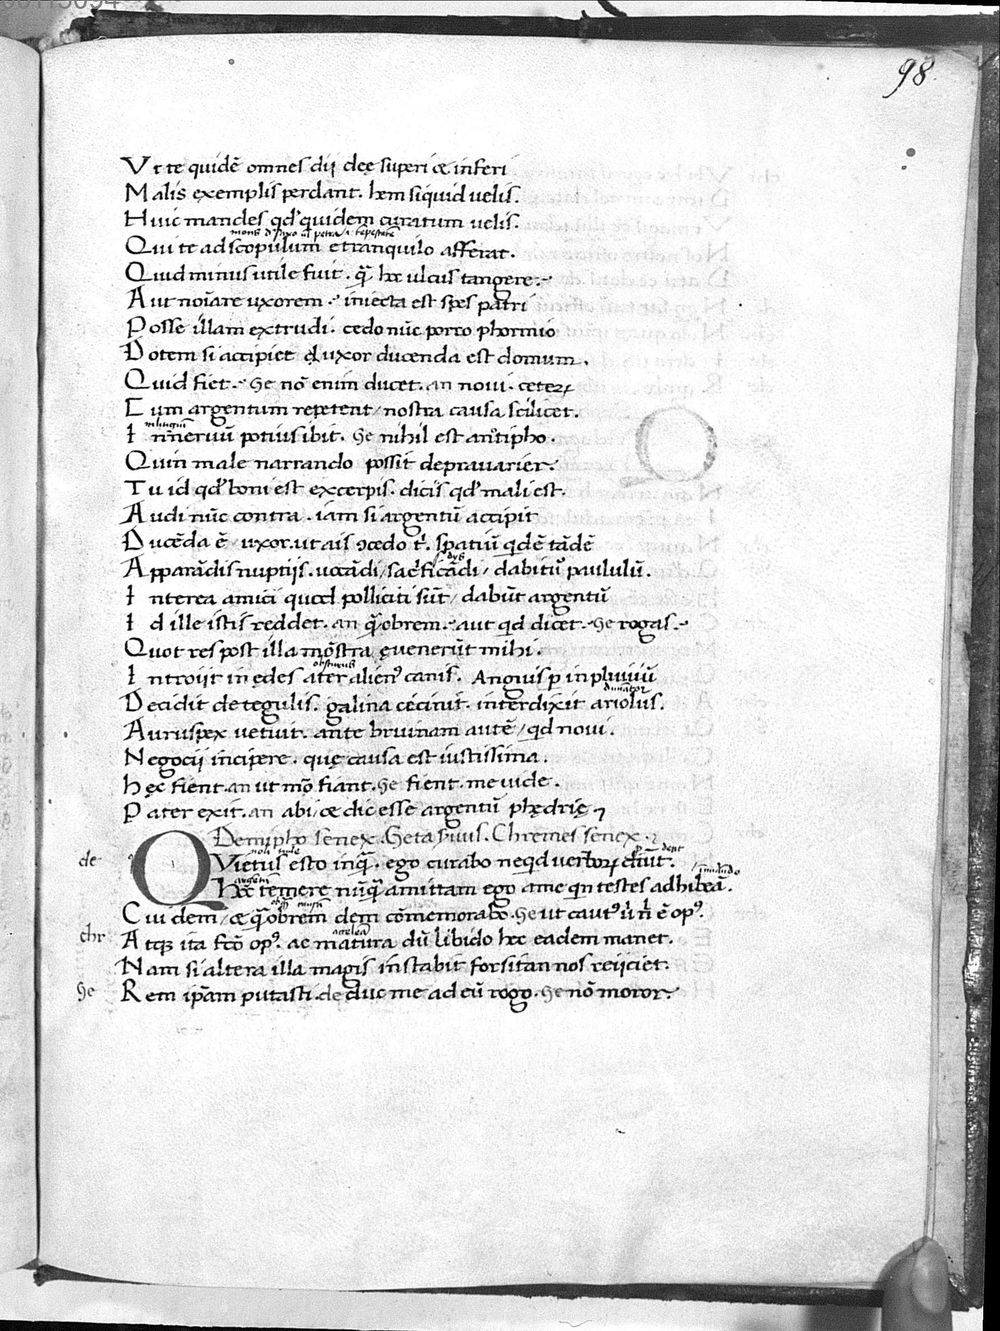 98
Vt te quidē omnes dii deę superi & inferi
Malis exemplis perdant. hem siquid uelis.
Huic mandes qd' quidem curatum uelis.
Qui te ad scopulum e tranquilo afferat.
Quid minus utile fuit. q̄ hoc ulcus tangere.
Aut noīare uxorem. iniecta est spes patri
Posse illam extrudi. cedo nūc porro phormio
Dotem si accipiet uxor ducenda est domum.
Quid fiet. Ge nō enim ducet. an noui. ceterꝝ
Cum argentum repetent / nostra causa scilicet.
In neruū potius ibit. Ge nihil est antipho.
Quin male narrando possit deprauarier.
Tu id qd' boni est excerpis. dicis qd' mali est.
Audi nūc contra. iam si argentū accipit
Ducēda ē uxor. ut ais ↄcedo t'. spatiū qdē tādē
Apparādis nuptijs. uocādi / sacrificādi / dabitur paululū.
Interea amici quod polliciti sūt / dabūt argentū
Id ille istis reddet. an q̄obrem. aut qd dicet. Ge rogas.
Quot res post illa mōstra euenerūt mihi.
Introiit in ędes ater alien9 canis. Anguis p inpluuiū
Decidit de tegulis. galina cecinit. interdixit ariolus.
Auruspex uetuit. ante brumam autē / qd noui.
Negocii incipere. quę causa est iustissima.
hęc fient. an ut mō fiant. Ge fient. me uide.
Pater exit. an abi / & dic esse argentū phędrię
Demipho senex. Geta seruus. Chremes senex.
de QVietus esto inq̄. ego curabo neqd uerborꝝ diuit.
Hoc temere nūq̄ amittam ego a me qn testes adhibeā.
Cui dem / & q̄obrem dem cōmemorabo. Ge ut caut9 ū n̄ ē op9.
chr Atqꝫ ita fcō op9. ac matura dū libido hoc eadem manet.
Nam si altera illa magis instabit forsitan nos reijciet.
Ge Rem ipsam putasti. de duc me ad eū rogo. Ge nō moror.